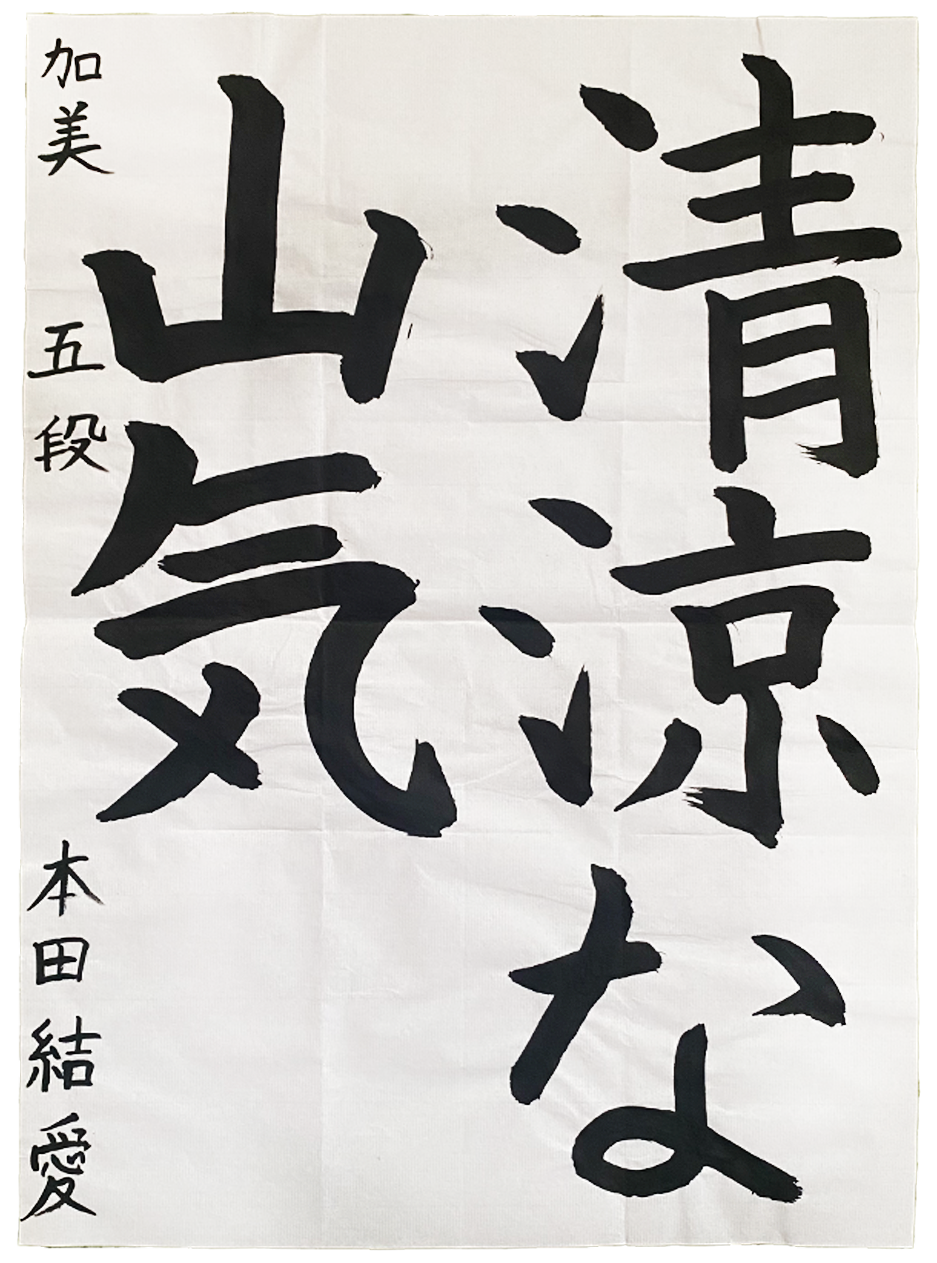 清涼な
山気
加美 五段 本田結愛